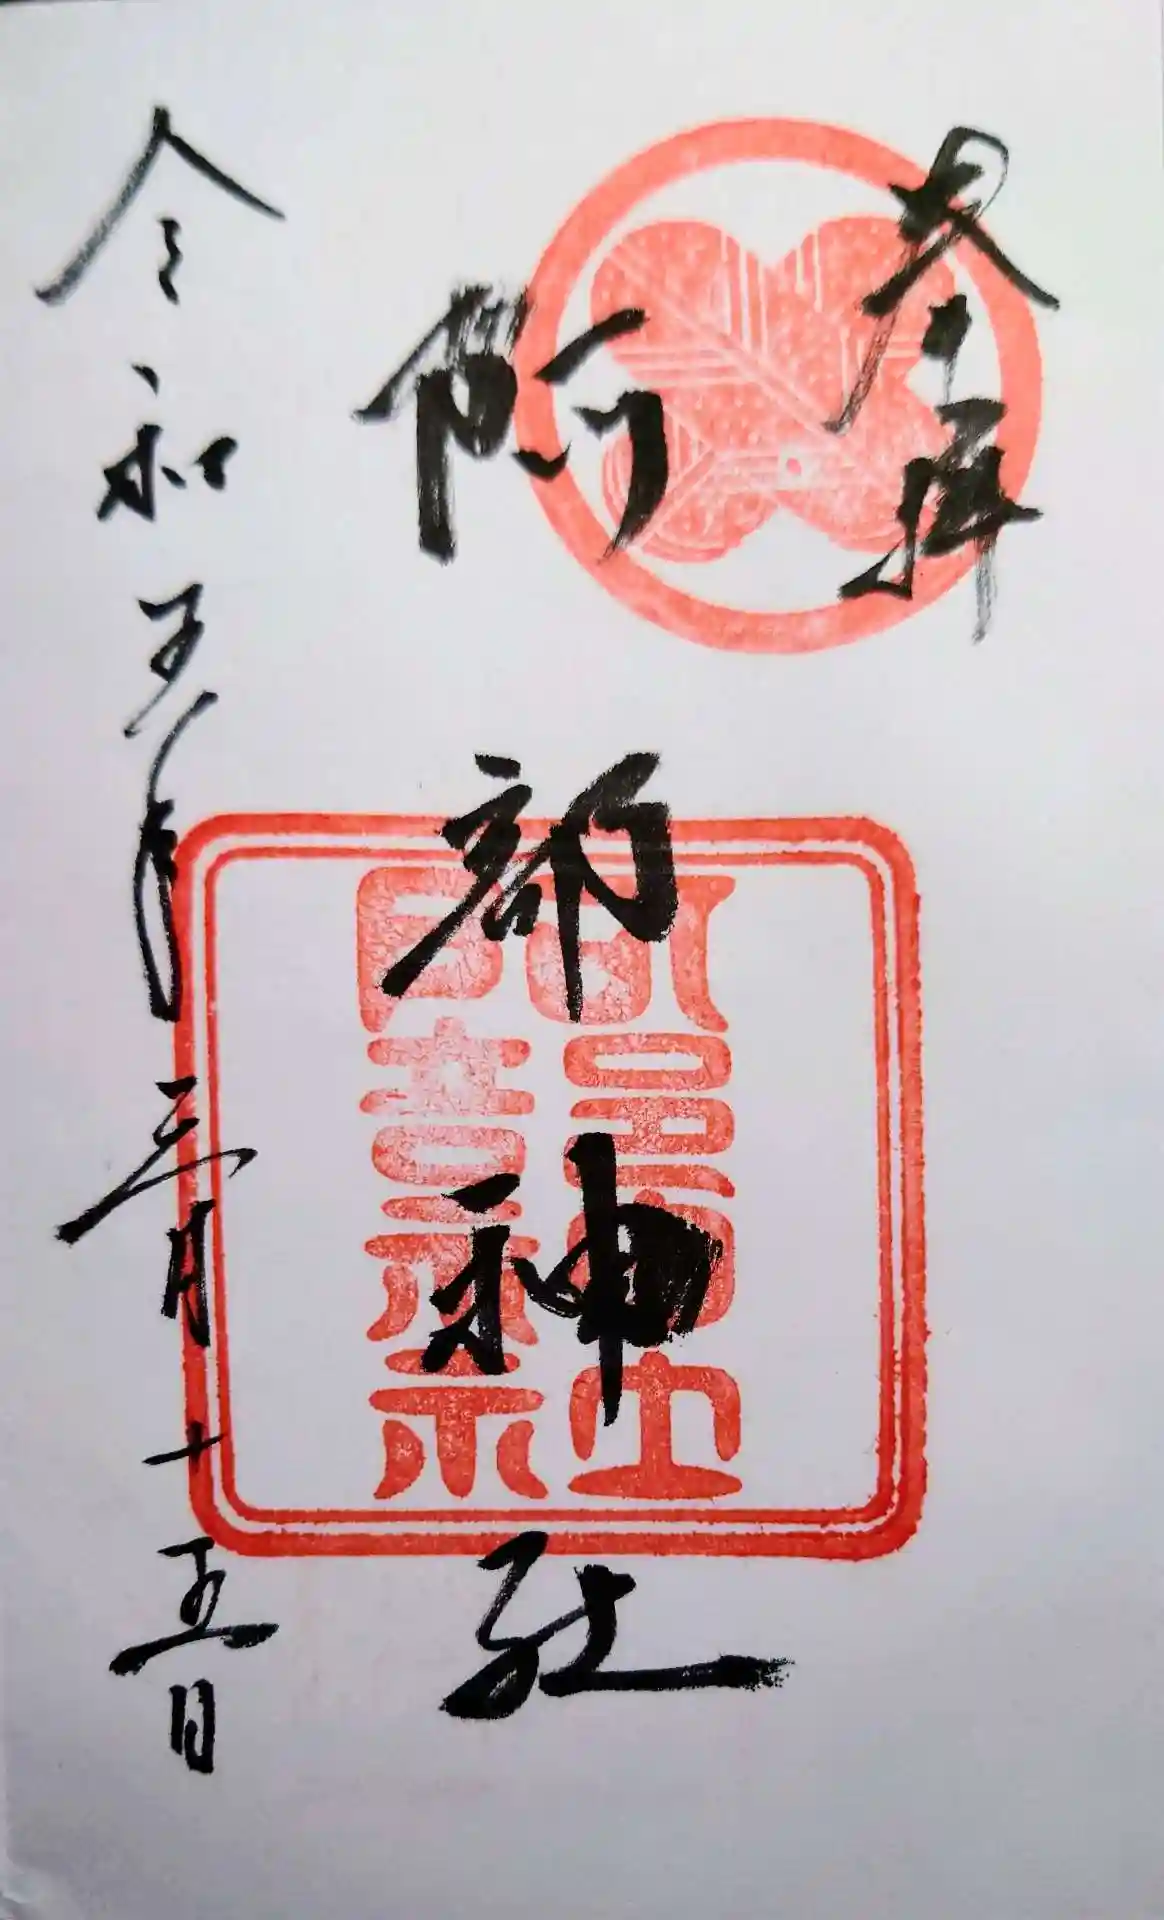 奉拝
阿部神社
阿部神社
令和五年三月十五日